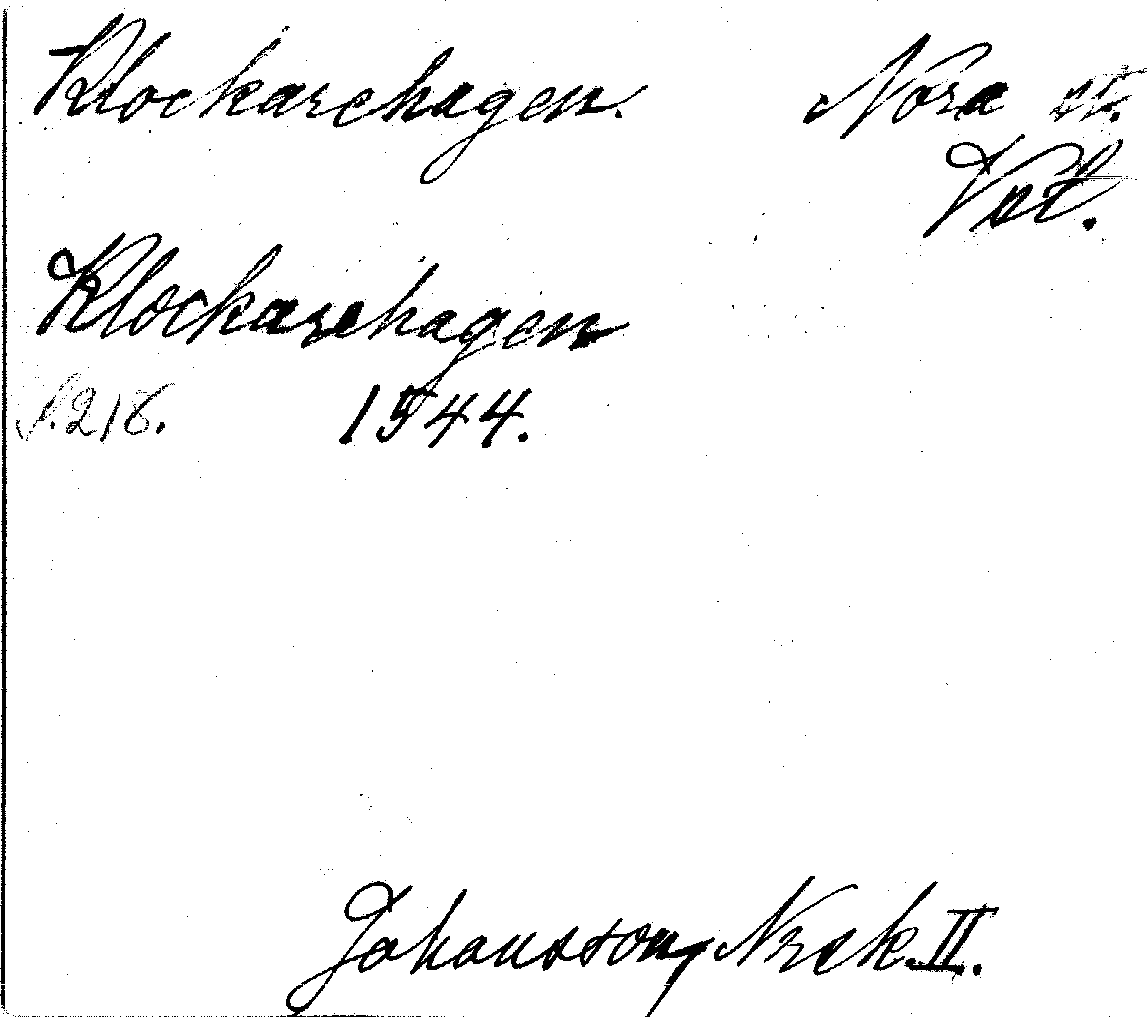 Klockarehagen. Nora st.
Vst.
Klockarehagen
s. 218. 1544.
Johansson, Nrsk. II.